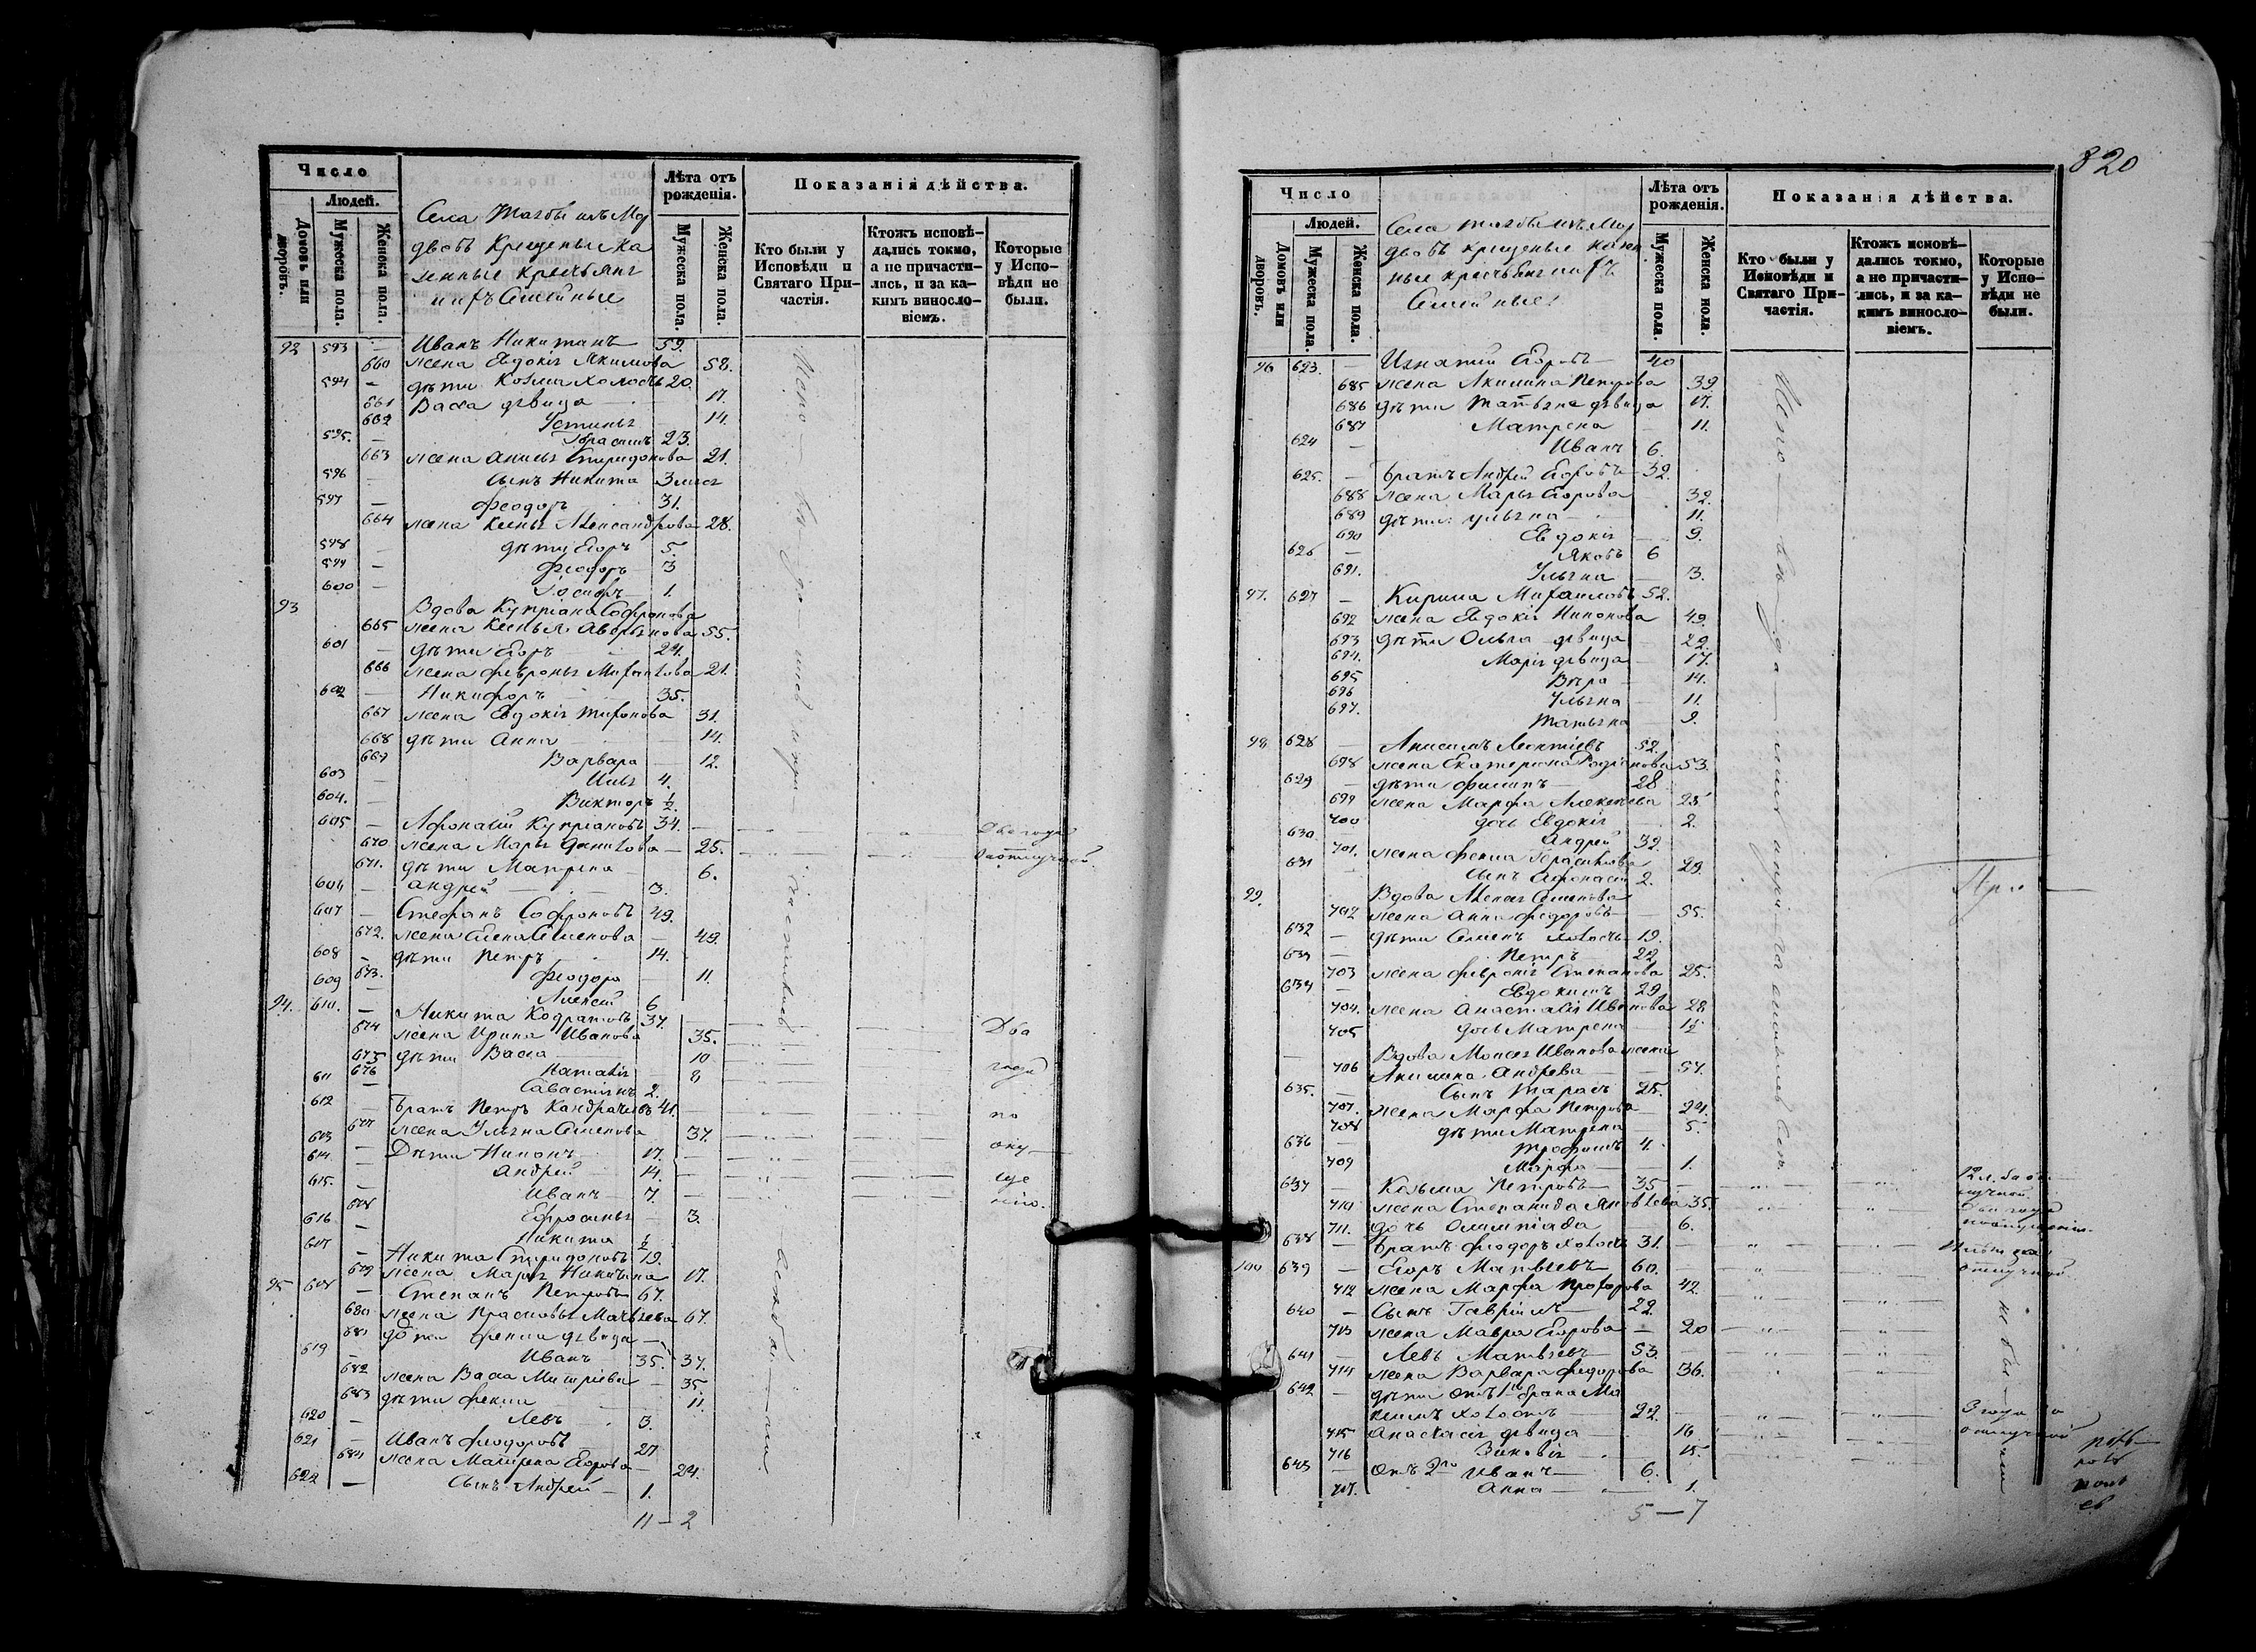 Число
Людей.
Домовъ или дворовъ.
Мужеска пола.
Женска пола.
Села
двовъ крещеные ка
зенные крестьяне
и ихъ Семейные
Лѣта отъ рожденія.
Мужеска пола.
Женска пола.
Показанія дѣйства.
Кто были у Исповѣди и Святаго Причастія.
Ктожъ исповѣдались токмо, а не причастились, и за какимъ винословіемъ.
Которые у Исповѣди не были.
92 593 — Иванъ Никитинъ 59.
660 жена Евдокія Якимова 58.
594 — дѣти Козма холостъ 20.
661 Васса дѣвица — 17.
662 Устинья 14.
595. — Герасимъ 23.
663 жена Спиридонова 21.
596 — сынъ Никита 3
597 — Феодоръ 31.
664 жена Ксенья Александрова 28.
598 — дѣти Егоръ 5.
599 — Феодоръ 3
600 — 1.
93 Вдова Купріана Софронова
665 жена Ксенья Аверьянова 55.
601 — дѣти Егоръ 24.
666 жена Февронья Михайлова 21.
602 — Никифоръ 35.
667 жена Евдокія Тихонова 31.
668 дѣти Анна 14.
669 Варвара — 12.
603 — Илья 4.
604. — Викторъ ½.
605 — Афонасій Купріановъ 34.
670 жена Марья Данилова — 25.
671. дѣти Матрена 6.
606 — Андрей 3.
607 — Стефанъ Софроновъ 49.
672. жена Елена Семенова — 49.
608 — дѣти Петръ 14.
673. Феодора 11.
609 — Алексѣй 6
94. 610. — Никита Кодратовъ 37.
674 жена Ирина Иванова 35.
675 дѣти Васса 10
676 Наталія 8
611 — Савастіянъ 2.
612 — Братъ Петръ Кандратьевъ 41.
677 жена Ульяна Семенова 37.
613 — Дѣти Никонъ 17.
614. — Андрей 14.
615. — Иванъ 7.
678 Ефросинья — 3.
616 — Никита ½
617 — Никита Спиридоновъ 19.
679 жена Марья Никитина 17.
95 618 — Степанъ Петровъ 67.
680 жена Прасковья Матвѣева 67.
681 дѣти Фекла дѣвица — 37.
619 — Иванъ 35.
682 жена Васса Митріева — 35
683 дѣти Фекла 11.
620 — Левъ 3.
621 — Иванъ Феодоровъ 27
684 жена Матрена Егорова — 24.
622 — сынъ Андрей — 1.
Два
года
по
11 — 2
820
Число
Людей.
Домовъ или дворовъ.
Мужеска пола.
Женска пола.
Села
двовъ крещеные казен
ные крестьяне и ихъ
Семейные
Лѣта отъ рожденія.
Мужеска пола.
Женска пола.
Показанія дѣйства.
Кто были у Исповѣди и Святаго Причастія.
Ктожъ исповѣдались токмо, а не причастились, и за какимъ винословіемъ.
Которые у Исповѣди не были.
96 623. — Игнатій Егоровъ — 40
685 жена Акилина Петрова 39
686 дѣти Татьяна дѣвица 17.
687 Матрена 11.
624 — Иванъ 6.
625. — Братъ Андрей Егоровъ 32.
688 жена Марья Егорова 32.
689 дѣти Ульяна 11.
690 Евдокія 9.
626 — Яковъ 6
691. Ульяна 3.
97. 627 — Кирила Михайловъ 52.
692 жена Евдокія Никонова 49.
693 дѣти Ольга дѣвица 22.
694. Марія дѣвица 17.
695 Вѣра 14.
696 Ульяна 11.
697. Татьяна 9.
98 628 — Анисимъ Леонтіевъ 52.
698 жена Екатерина Родіонова 53.
629 — дѣти Филипъ 28
699 жена Марфа Алексѣева 25
700 дочь Евдокія 2.
630 — Андрей 32
701. жена Фекла Герасимова 29.
631 Сынъ Афонасій 2.
99. Вдова Алексѣя Семенова
702 жена Анна Федорова — 55.
632 — дѣти Семенъ холостъ 19.
633 — Петръ 22
703 жена Февронія Степанова 25.
634 — Евдокимъ 29
704. жена Анастасія Иванова 28
705 дочь Матрена 1½
Вдова Моисея Иванова жена
706 Акилина Андреева 57.
635. — Сынъ Тарасъ 25.
707. жена Марфа Петрова 24.
708 дѣти Матрена 5.
636 — Трофимъ 4.
709 Марфа — 1.
637 — Козьма Петровъ 35
710 жена Степанида Яковлева 35.
711. дочь Олимпіада 6.
638 — Братъ Феодоръ холостъ 31.
100 639 — Егоръ Матвѣевъ 60.
712 жена Марфа Прохорова 42.
640 — Сынъ Гаврилъ 22
713 жена Мавра Егорова — 20
641 — Левъ Матвѣевъ 53.
714 жена Варвара Федорова 36.
642 — дѣти отъ 1го брака Ма
ксимъ холостъ 22.
715 Анастасія дѣвица 16
716 Зиновія 15.
643 — отъ 2го Иванъ 6.
717. Анна — 1.
5 — 7